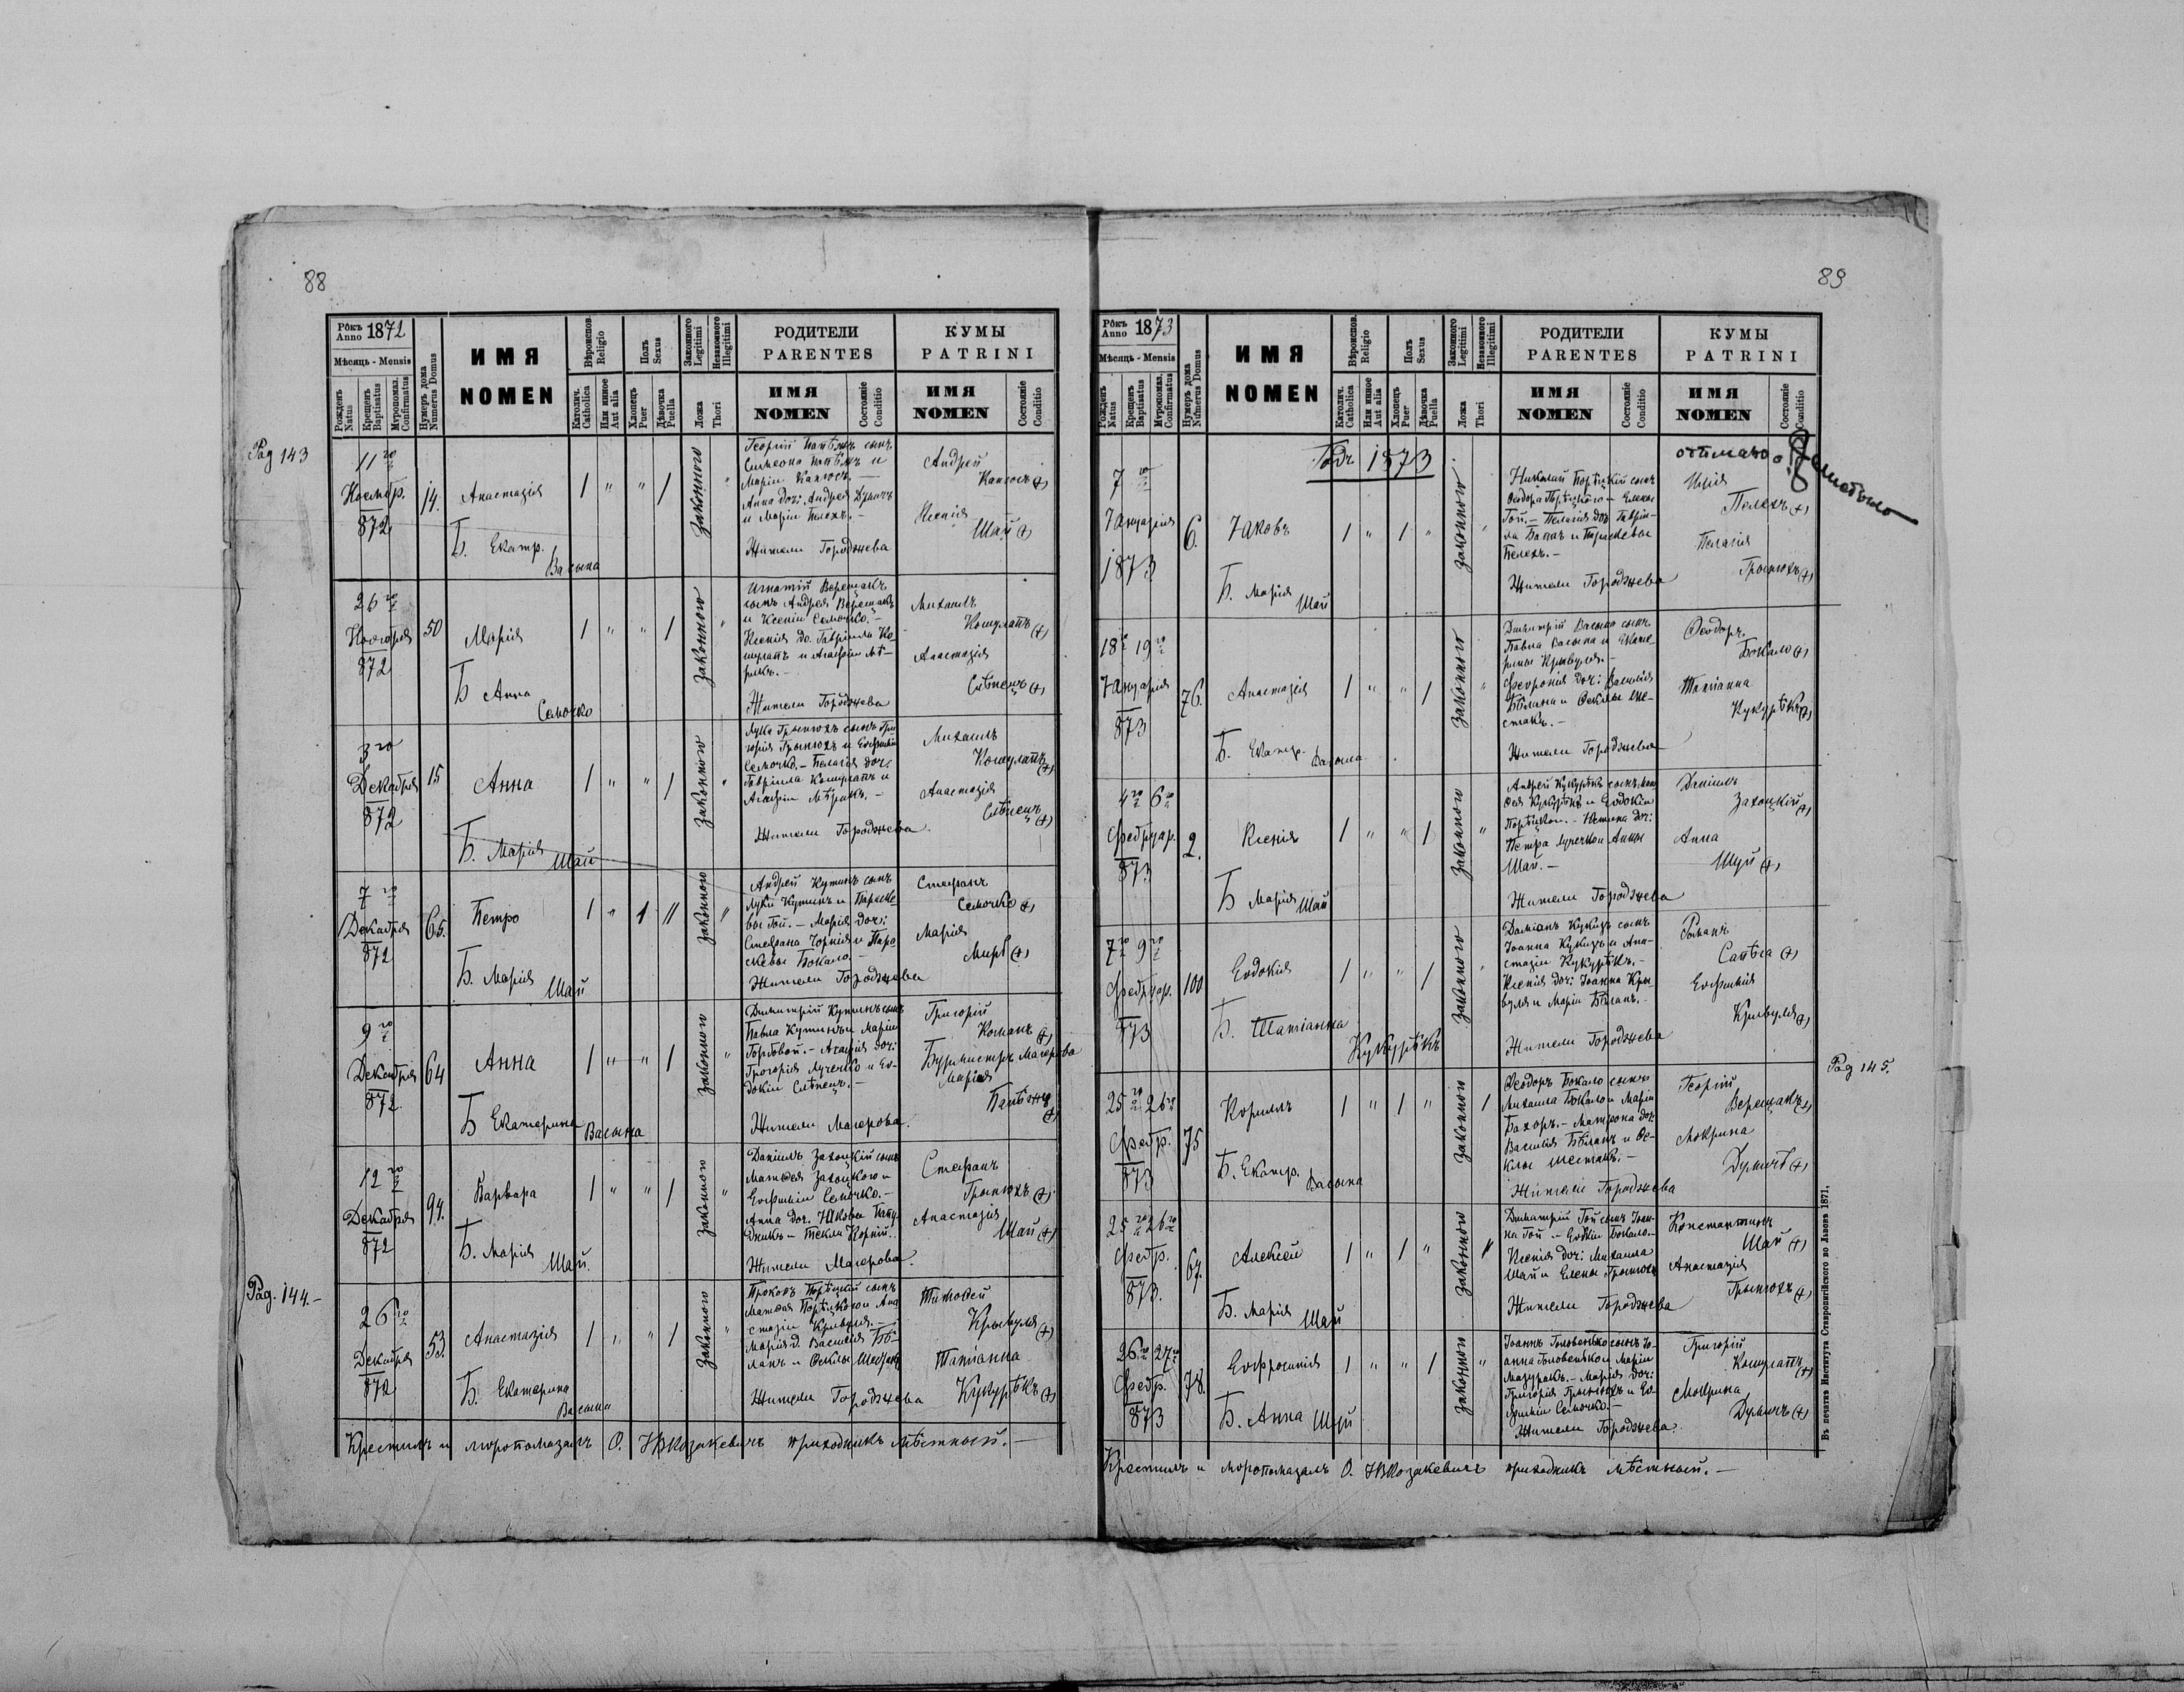 88
Рôкъ Anno 1872
Мѣсяць - Mensis
Рожденъ Natus
Крещенъ Baptisatus
Муропомаз. Confirmatus
Нумеръ дома Numerus Domus
ИМЯ
NOMEN
Вѣроиспов. Religio
Католич. Catholica
Или инное Aut alia
Полъ Sexus
Хлопець Puer
Дѣвочка Puella
Законного Legitimi
Незаконного Illegitimi
Ложа
Thori
РОДИТЕЛИ
PARENTES
ИМЯ
NOMEN
Состояніе Conditio
КУМЫ
PATRINI
ИМЯ
NOMEN
Состояніе Conditio
Pag 143
11го
Ноембр.
872
14.
Анастазія
Б. Екатр.
Васына
1 " " 1
Законного
"
Георгій
сынъ
Симеона
и
Маріи Канюсъ. —
Анна доч: Андрея Думичъ
и Маріи Пелехъ. –
Жители Городжева
Андрей
Канюсъ (+)
Ксенія
Шай (+)
26го
Ноембрія
872
50
Марія
Б Анна
Семочко
1 " " 1
Законного
"
Игнатій Верещакъ
сынъ Андрея Верещакъ
и Ксеніи Семочко. –
Ксенія до. Гавріила Ко
шулапъ и Агафіи Мѣ–
рикъ. –
Жители Городжева
Михаилъ
Кошулапъ (+)
Анастазія
Слѣпецъ (+)
3го
Декабрія
872
15
Анна
Б. Марія Шай
1 " " 1
Законного
"
Лука Грынюхъ сынъ Гри
горія Грынюхъ и Евфиміи
Семочко. – Пелагія доч:
Гавріила Кошулапъ и
Агафіи Мѣрикъ. –
Жители Городжева
Михаилъ
Кошулапъ (+)
Анастазія
Слѣпецъ (+)
7го
Декабрія
872
65.
Петро
Б. Марія Шай
1 " 1 "
Законного
"
Андрей Кутынъ сынъ
Луки Кутынъ и Параске
вы Гой. – Марія доч:
Стефана Чорнія и Пара
скевы Бокало. –
Жители Городжева
Стефанъ
Семочко (+)
Марія
(+)
9го
Декабрія
872
64
Анна
Б Екатерина Васына
1 " " 1
Законного
"
Димитрій Кутынъ сынъ
Павла Кутынъ и Маріи
Горбовой. – Агафія доч:
Григорія Лученко и Ев–
докіи Слѣпецъ. –
Жители Магерова.
Григорій
Команъ (+)
Бурмистръ Магерова
Марія
(+)
12го
Декабрія
872
94.
Варвара
Б. Марія Шай.
1 " " 1
Законного
"
Даніилъ Захоцкій сынъ
Матѳея Захоцкого и
Евфиміи Семочко. –
Анна доч. Якова
и Текли Корній.
Жители Магерова.
Стефанъ
Грынюхъ (+)
Анастазія
Шай (+)
Pag. 144. –
26го
Декабрія
872
53
Анастазія
Б. Екатерина
Васына
1 " " 1
Законного
"
Прокопъ Порѣцкій сынъ
Матѳея Порѣцкого и Ана
стазіи Крывуля. –
Марія д. Василія Бѣ–
ланъ и Ѳеклы Шестакъ
Жители Городжева
Тимоѳей
Крывуля (+)
Татіанна
Кукурѣкъ (+)
Крестилъ и муропомазалъ О. Козакевичъ приходникъ мѣстный. –
89
Рôкъ Anno 1873
Мѣсяць - Mensis
Рожденъ Natus
Крещенъ Baptisatus
Муропомаз. Confirmatus
Нумеръ дома Numerus Domus
ИМЯ
NOMEN
Вѣроиспов. Religio
Католич. Catholica
Или инное Aut alia
Полъ Sexus
Хлопець Puer
Дѣвочка Puella
Законного Legitimi
Незаконного Illegitimi
Ложа
Thori
РОДИТЕЛИ
PARENTES
ИМЯ
NOMEN
Состояніе Conditio
КУМЫ
PATRINI
ИМЯ
NOMEN
Состояніе Conditio
Годъ 1873
7го
Януарія
1873
6.
Яковъ
Б. Марія Шай
1 " 1 "
Законного
"
Николай Порѣцкій сынъ
Ѳеодора Порѣцкого и Елены
Гой. – Пелагія доч Гавріи–
ла и Параскевы
Пелехъ. –
Жители Городжева
Илія
Пелехъ (+)
Пелагія
Грынюхъ (+)
18го 19го
Януарія
873
76.
Анастазія
Б. Екатр. Васына
1 " " 1
Законного
"
Димитрій Васына сынъ
Павла Васына и Екате–
рины Крывуля. –
Февронія доч: Василія
Бѣлана и Ѳеклы Ше–
стакъ. –
Жители Городжева
Ѳеодоръ
Бокало (+)
Татіанна
Кукурѣкъ (+)
4го 6го
Фебруар.
873
2.
Ксенія
Б Марія Шай
1 " " 1
Законного
"
Андрей Кукурѣкъ сынъ
Кукурѣкъ и Евдокіи
Порѣцкои. –
доч:
Петра Лучечко и Анны
Шай. –
Жители Городжева
Даніилъ
Захоцкій (+)
Анна
Шуй (+)
7го 9го
Фебруар.
873
100
Евдокія
Б. Татіанна
Кукурѣкъ
1 " " 1
Законного
"
Даміанъ Кукизъ сынъ
Іоанна Кукизъ и Ана–
стазіи Кукурѣкъ. –
Ксенія доч: Іоанна Кры
вуля и Маріи Бѣланъ. –
Жители Городжева
Романъ
Сапѣга (+)
Евфимія
Крывуля (+)
Pag 145.
25го 26го
Фебр.
873
75
Корилъ
Б. Екатр. Васына
1 " 1 "
Законного
1
Ѳеодоръ Бокало сынъ
Михаила Бокало и Маріи
Бахоръ. – Матрона доч:
Василія Бѣланъ и Ѳе–
клы Шестакъ. –
Жители Городжева
Георгій
Верещакъ (+)
Мокрина
Думичъ (+)
25го 26го
Фебр.
873.
67.
Алексей
Б. Марія Шай
1 " 1 "
Законного
"
Димитрій Гой сынъ Іоан–
на Гой и Евдкіи Бокало. –
Ксенія доч: Михаила
Шай и Елены Грынюхъ
Жители Городжева
Константинъ
Шай (+)
Анастазія
Грынюхъ (+)
26го 27го
Фебр.
873
78.
Евфросинія
Б. Анна Шуй
1 " " 1
Законного
"
Іоаннъ Головенько сынъ Іо–
анна Головенько и Маріи
Мазуракъ. – Марія доч:
Григорія Грынюхъ и Ев–
фиміи Семочко. –
Жители Городжева.
Григорій
Кошулапъ (+)
Мокрина
Думичъ (+)
Крестилъ и муропомазалъ О. Козакевичъ приходникъ мѣстный. –
Въ печатнѣ Института Ставропигійского во Львовѣ 1871.